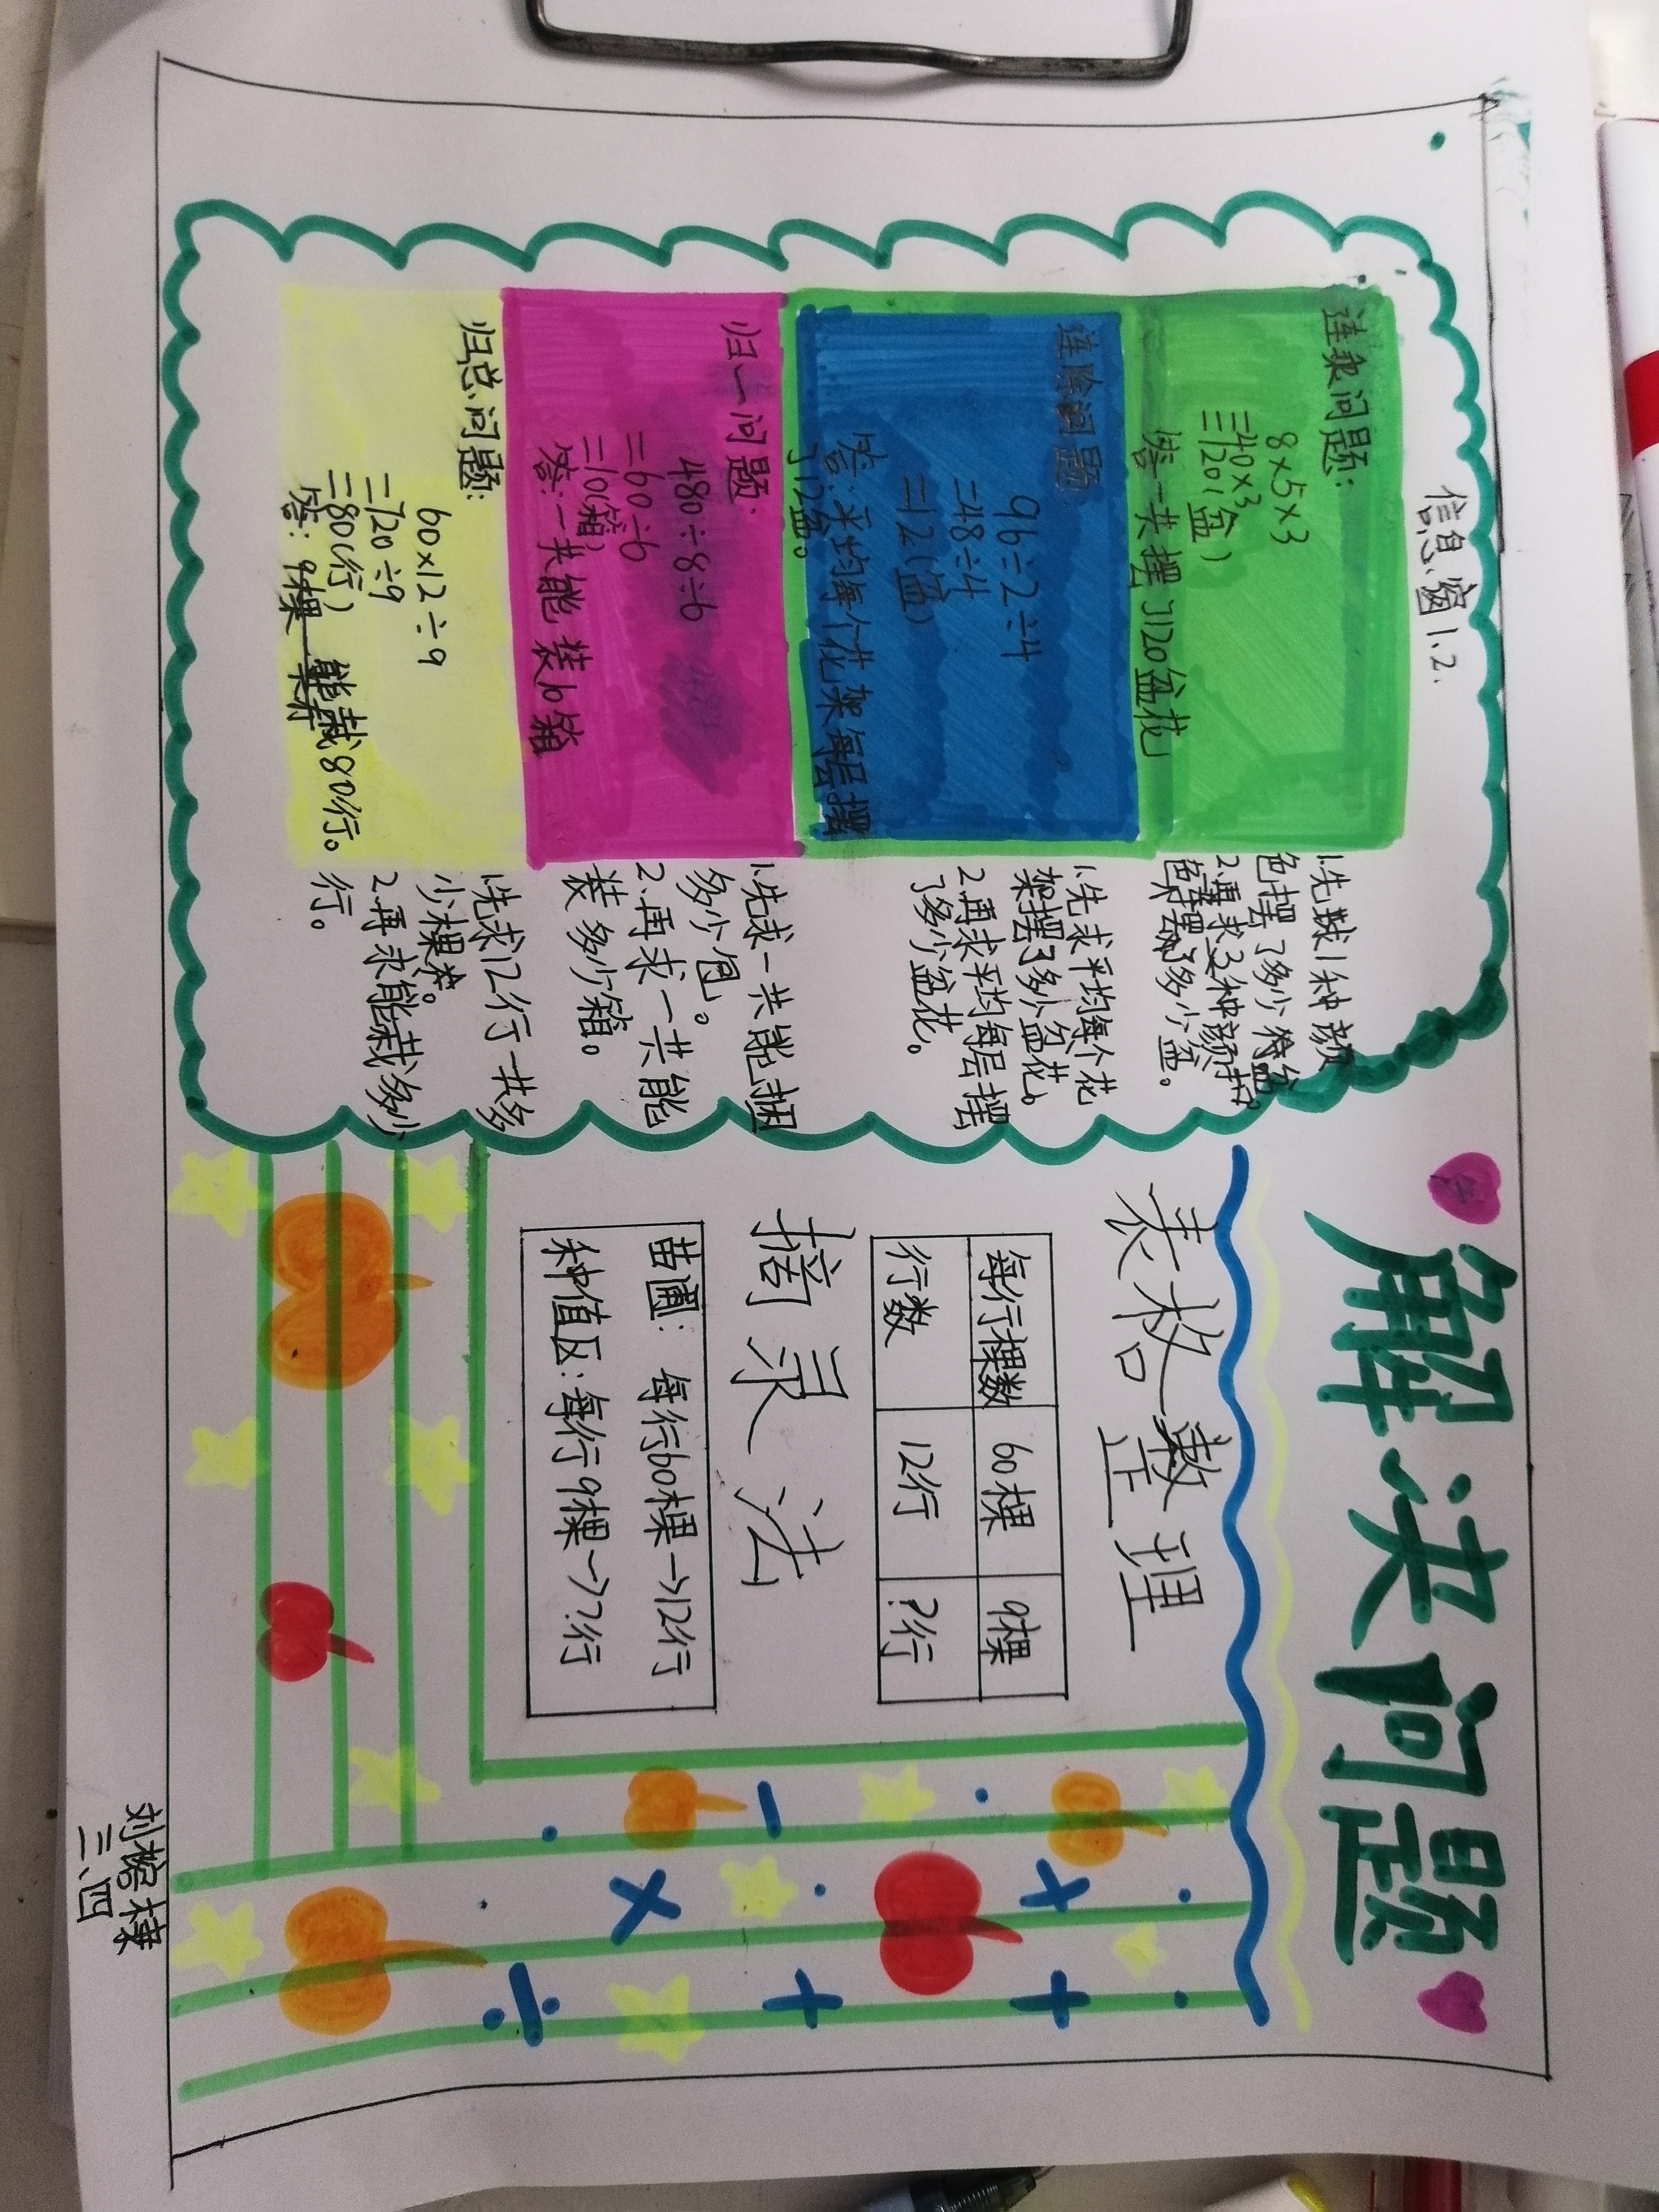 解决问题
信息窗1、2.
连乘问题:
8×5×3
=40×3
=120(盆)
答:一共摆了120盆花
1.先求1种颜
色摆了多少盆
2.再求3种颜
色摆了多少盆。
连除问题:
96÷2÷4
=48÷4
=12(盆)
答:平均每个花架每层摆
了12盆。
1.先求平均每个花
架摆了多少盆花。
2.再求平均每层摆
了多少盆花。
归一问题:
480÷8÷6
=60÷6
=10(箱)
答:一共能装10箱
1.先求一共能捆
多少包。
2.再求一共能
装多少箱。
归总问题:
60×12÷9
=720÷9
=80(行)
答:9棵一 能栽80行。
1.先求12行一共多
少棵。
2.再求能栽多少
行。
表格整理
每行棵数 60棵 9棵
行数 12行 ?行
摘录法
苗圃: 每行60棵→12行
种值区:每行9棵→?行
三、四